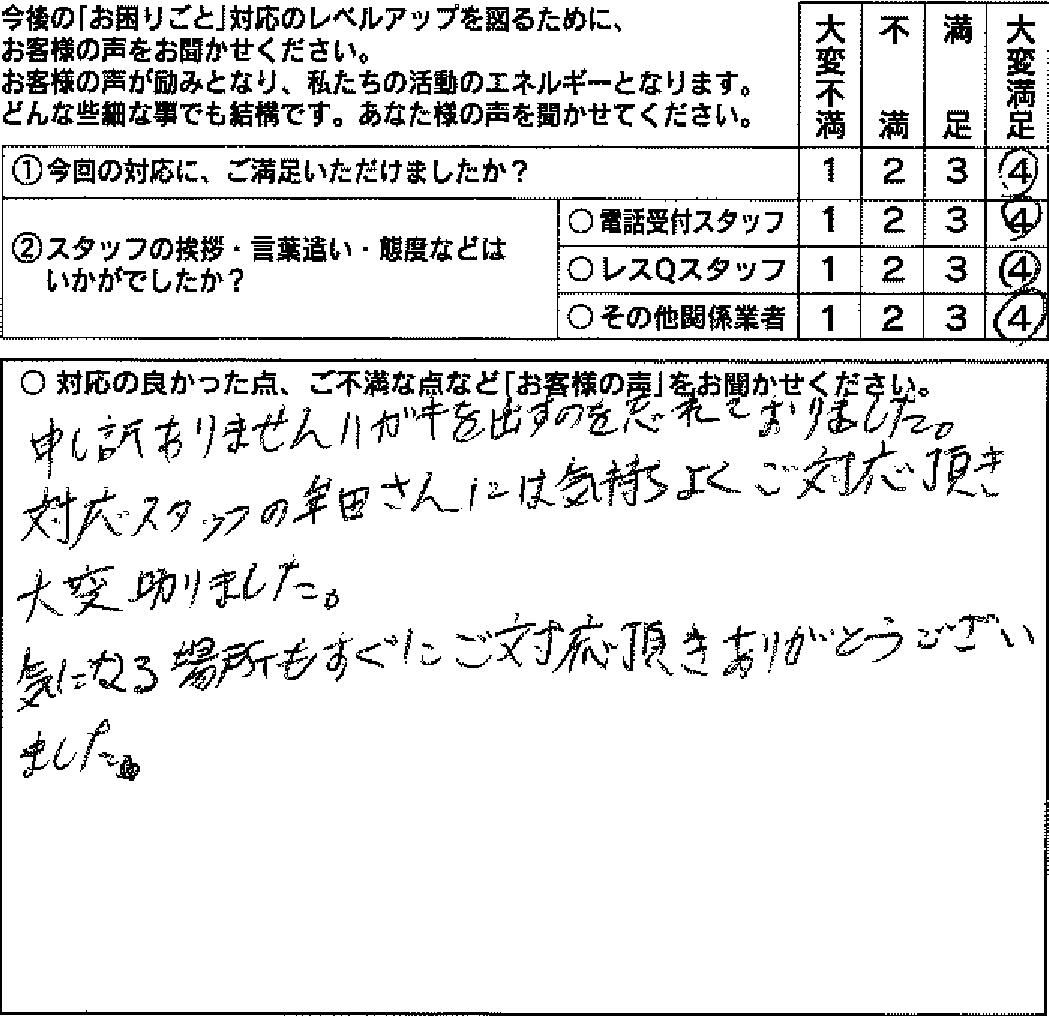 今後の「お困りごと」対応のレベルアップを図るために、
お客様の声をお聞かせください。
お客様の声が励みとなり、私たちの活動のエネルギーとなります。
どんな些細な事でも結構です。あなた様の声を聞かせてください。
大変不満 不満 満足 大変満足
①今回の対応に、ご満足いただけましたか？ 1 2 3 4
②スタッフの挨拶・言葉遣い・態度などは
いかがでしたか？
○電話受付スタッフ 1 2 3 4
○レスQスタッフ 1 2 3 4
○その他関係業者 1 2 3 4
○ 対応の良かった点、ご不満な点など「お客様の声」をお聞かせください。
申し訳ありませんハガキを出すのを忘れておりました。
対応スタッフの牟田さんには気持ちよくご対応頂き
大変助りました。
気になる場所もすぐにご対応頂きありがとうござい
ました。